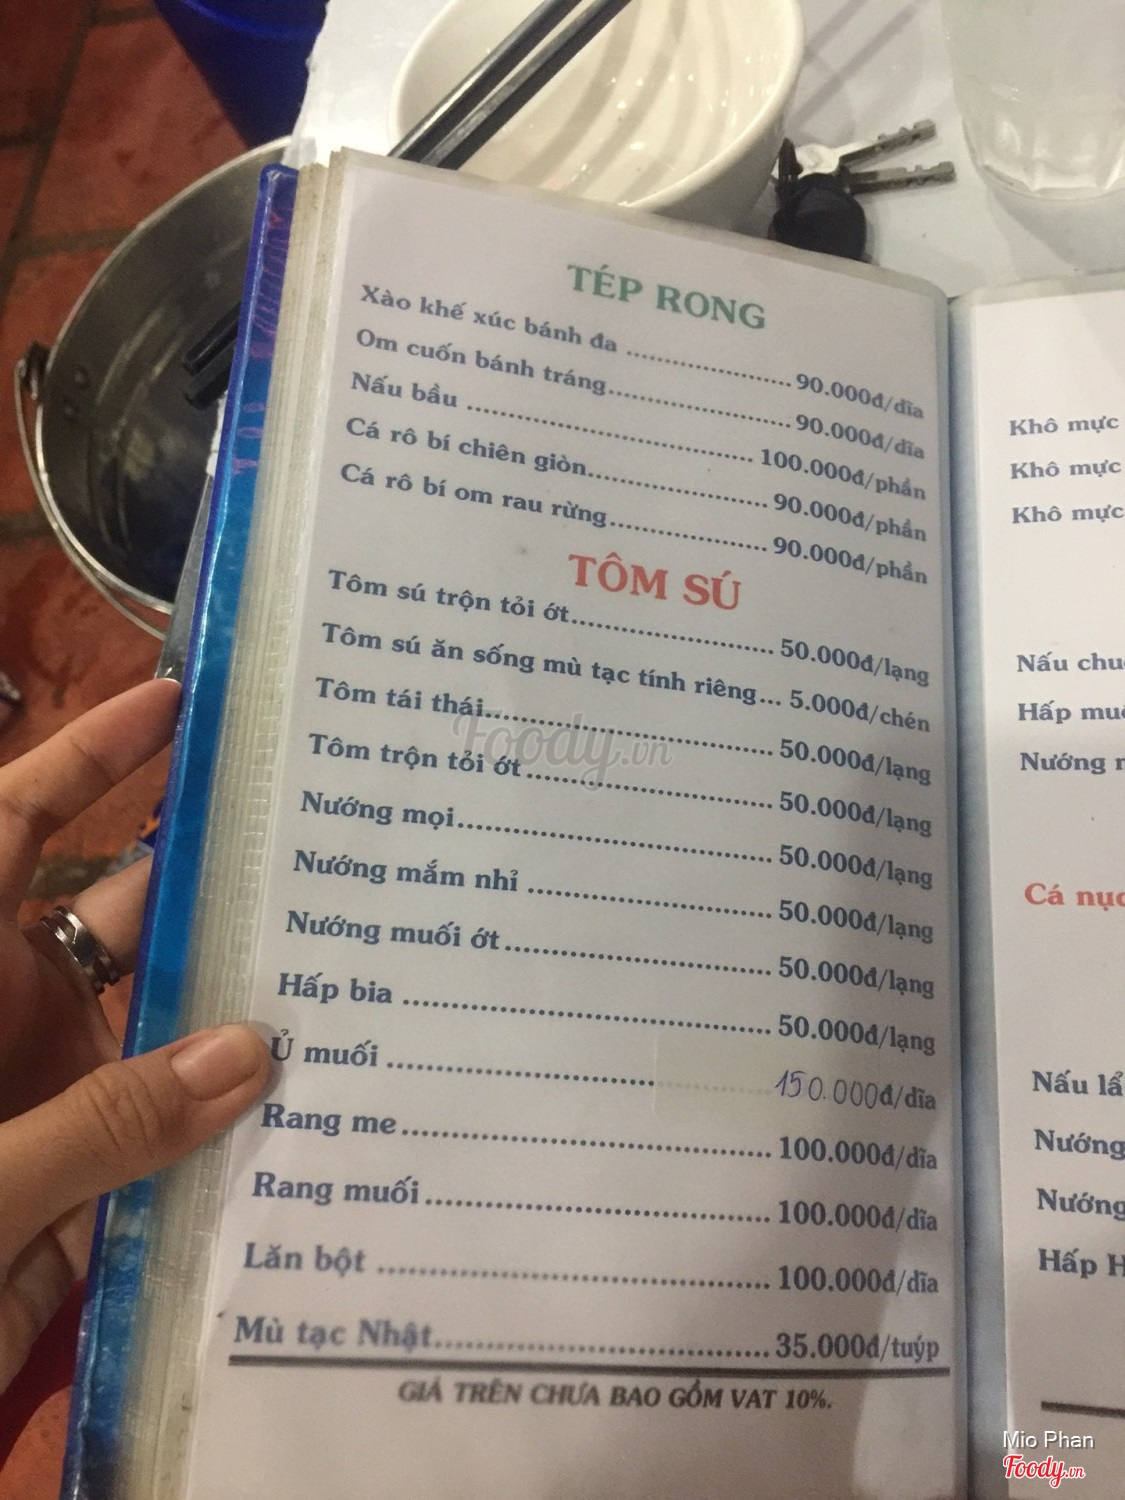 TÉP RONG
Xào khế xúc bánh đa ........................ 90.000đ/dĩa
Om cuốn bánh tráng........................... 90.000đ/dĩa
Nấu bầu ......................................... 100.000đ/phần
Cá rô bí chiên giòn.......................... 90.000đ/phần
Cá rô bí om rau rừng....................... 90.000đ/phần
TÔM SÚ
Tôm sú trộn tỏi ớt............................. 50.000đ/lạng
Tôm sú ăn sống mù tạc tính riêng... 5.000đ/chén
Tôm tái thái......................................... 50.000đ/lạng
Tôm trộn tỏi ớt ................................... 50.000đ/lạng
Nướng mọi............................................. 50.000đ/lạng
Nướng mắm nhỉ ................................... 50.000đ/lạng
Nướng muối ớt ...................................... 50.000đ/lạng
Hấp bia .................................................. 50.000đ/lạng
Ủ muối .................................................. 150.000đ/dĩa
Rang me.................................................. 100.000đ/dĩa
Rang muối............................................... 100.000đ/dĩa
Lăn bột .................................................. 100.000đ/dĩa
Mù tạc Nhật............................................ 35.000đ/tuýp
GIÁ TRÊN CHƯA BAO GỒM VAT 10%.
Khô mực
Khô mực
Khô mực
Nấu
Hấp
Nướng
Cá
Nấu
Nướng
Nướng
Hấp
Foody.vn
Mio Phan
Foody.vn